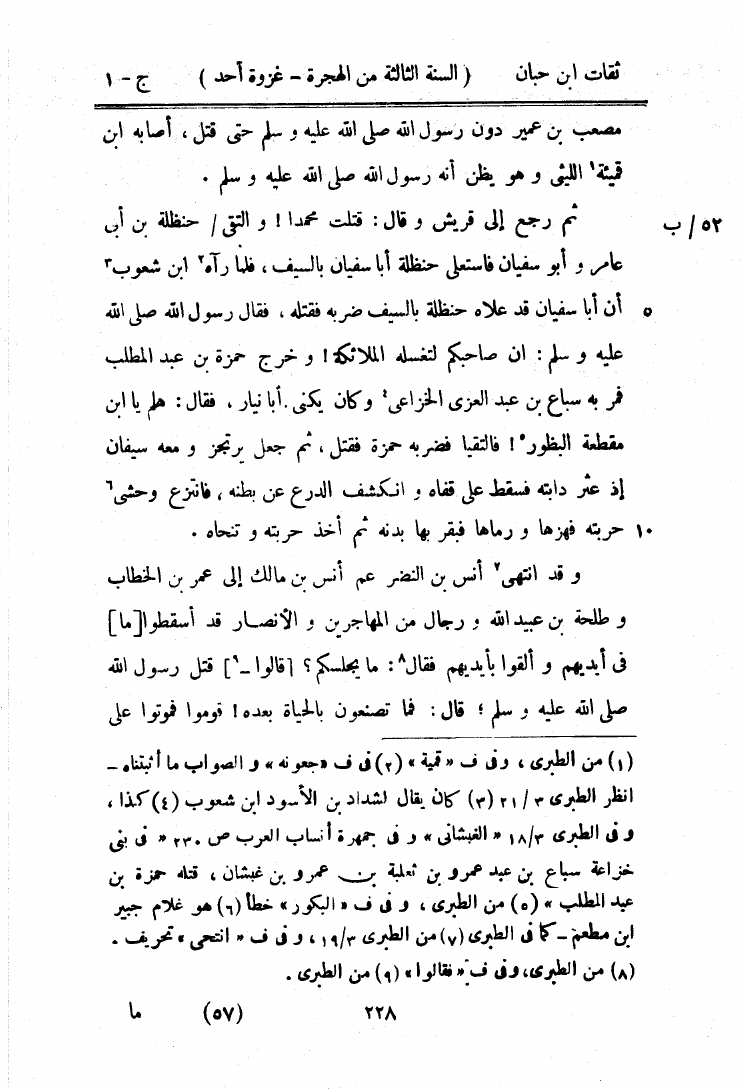 ثقات ابن حبان ( السنة الثالثة من الهجرة – غزوة أحد ) ج – ١
مصعب بن عمير دون رسول الله صلى الله عليه و سلم حتى قتل ، أصابه ابن
قميئة١ الليثى و هو يظن أنه رسول الله صلى الله عليه و سلم .
ثم رجع إلى قريش و قال : قتلت محمدا ! و التقى / حنظلة بن أبى ٥٢ / ب
عامر و أبو سفيان فاستعلى حنظلة أبا سفيان بالسيف ، فلما رآه٢ ابن شعوب٣
أن أبا سفيان قد علاه حنظلة بالسيف ضربه فقتله ، فقال رسول الله صلى الله ٥
عليه و سلم : ان صاحبكم لتغسله الملائكة ! و خرج حمزة بن عبد المطلب
فمر به سباع بن عبد العزى الخزاعى٤ وكان يكنى أبا نيار ، فقال : هلم يا ابن
مقطعة البظور٥ ! فالتقيا فضربه حمزة فقتل ، ثم جعل يرتجز و معه سيفان
إذ عثر دابته فسقط على قفاه و انكشف الدرع عن بطنه ، فانتزع وحشى٦
حربته فهزها و رماها فبقر بها بدنه ثم أخذ حربته و تنحاه . ١٠
و قد انتهى٧ أنس بن النضر عم أنس بن مالك إلى عمر بن الخطاب
و طلحة بن عبيد الله و رجال من المهاجرين و الأنصار قد أسقطوا [ما]
فى أيديهم و ألقوا بأيديهم فقال٨ : ما يجلسكم ؟ [قالوا _٩] قتل رسول الله
صلى الله عليه و سلم ؛ قال : فما تصنعون بالحياة بعده ! قوموا فموتوا على
(١) من الطبرى ، وفى ف « قمية » (٢) فى ف « جعونه » و الصواب ما أثبتناه –
انظر الطبرى ٣ / ٢١ (٣) كان يقال لشداد بن الأسود ابن شعوب (٤) كذا ،
و فى الطبرى ٣/١٨ « الغبشانى » و فى جمهرة أنساب العرب ص ٢٣٠ « فى بنى
خزاعة سباع بن عبد عمرو بن ثعلبة بن عمرو بن غبشان ، قتله حمزة بن
عبد المطلب » (٥) من الطبرى ، و فى ف « البكور » خطأ (٦) هو غلام جبير
ابن مطعم – كما فى الطبرى (٧) من الطبرى ٣/١٩ ، و فى ف « انتحى » تحريف .
(٨) من الطبرى ، وفى ف « فقالوا » (٩) من الطبرى .
٢٢٨ (٥٧) ما